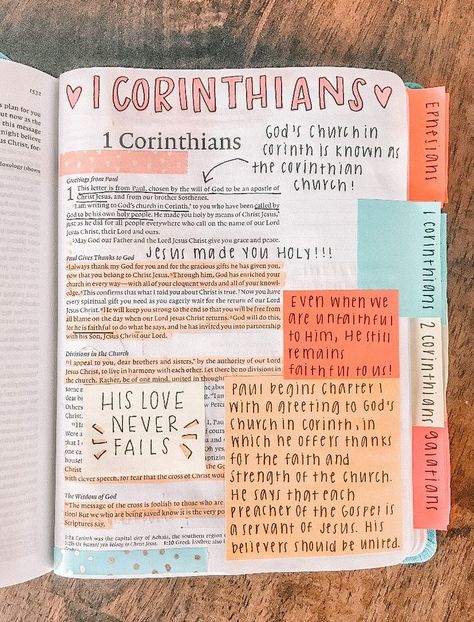 1531
s plan for you
but now as the
this message
night believe
us Christ, for-
Doxology is shown
♡ 1 CORINTHIANS ♡
1 Corinthians
GOD'S CHURCH IN
CORINTH IS KNOWN AS
THE CORINTHIAN
CHURCH!
Greetings from Paul
1 This letter is from Paul, chosen by the will of God to be an apostle of
Christ Jesus, and from our brother Sosthenes.
2 I am writing to God's church in Corinth, to you who have been called by
God to be his own holy people. He made you holy by means of Christ Jesus,
just as he did for all people everywhere who call on the name of our Lord
Jesus Christ, their Lord and ours.
3 May God our Father and the Lord Jesus Christ give you grace and peace.
JESUS MADE YOU HOLY!!!
Paul Gives Thanks to God
4 I always thank my God for you and for the gracious gifts he has given you,
now that you belong to Christ Jesus. 5 Through him, God has enriched your
church in every way—with all of your eloquent words and all of your knowl-
edge. 6 This confirms that what I told you about Christ is true. 7 Now you have
every spiritual gift you need as you eagerly wait for the return of our Lord
Jesus Christ. 8 He will keep you strong to the end so that you will be free from
all blame on the day when our Lord Jesus Christ returns. 9 God will do this,
for he is faithful to do what he says, and he has invited you into partnership
with his Son, Jesus Christ our Lord.
EVEN WHEN WE
ARE UNFAITHFUL
TO HIM, HE STILL
REMAINS
FAITHFUL TO US!
Divisions in the Church
10 I appeal to you, dear brothers and sisters, by the authority of our Lord
Jesus Christ, to live in harmony with each other. Let there be no divisions in
the church. Rather, be of one mind, united in though
HIS LOVE
NEVER
FAILS
with clever speech, for fear that the cross of Christ wou
The Wisdom of God
18 The message of the cross is foolish to those who are
tion! But we who are being saved know it is the very po
Scriptures say,
1:2a Corinth was the capital city of Achaia, the southern
PAUL BEGINS CHAPTER 1
WITH A GREETING TO GOD'S
CHURCH IN CORINTH, IN
WHICH HE OFFERS THANKS
FOR THE FAITH AND
STRENGTH OF THE CHURCH.
HE SAYS THAT EACH
PREACHER OF THE GOSPEL IS
A SERVANT OF JESUS. HIS
BELIEVERS SHOULD BE UNITED.
EPHESIANS
1 CORINTHIANS
2 CORINTHIANS
GALATIANS